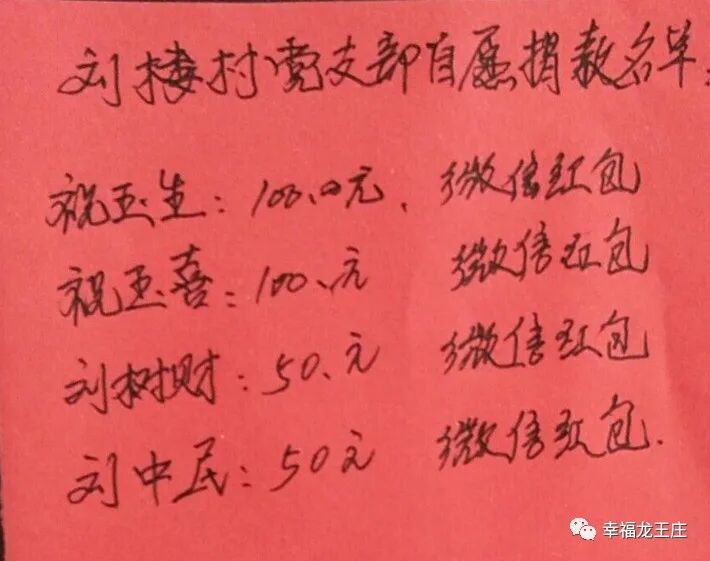 刘楼村党支部自愿捐款名单:
祝玉生:100.0元. 微信红包
祝玉喜:100.元 微信红包
刘树财:50.元 微信红包
刘中民:50元 微信红包.
幸福龙王庄